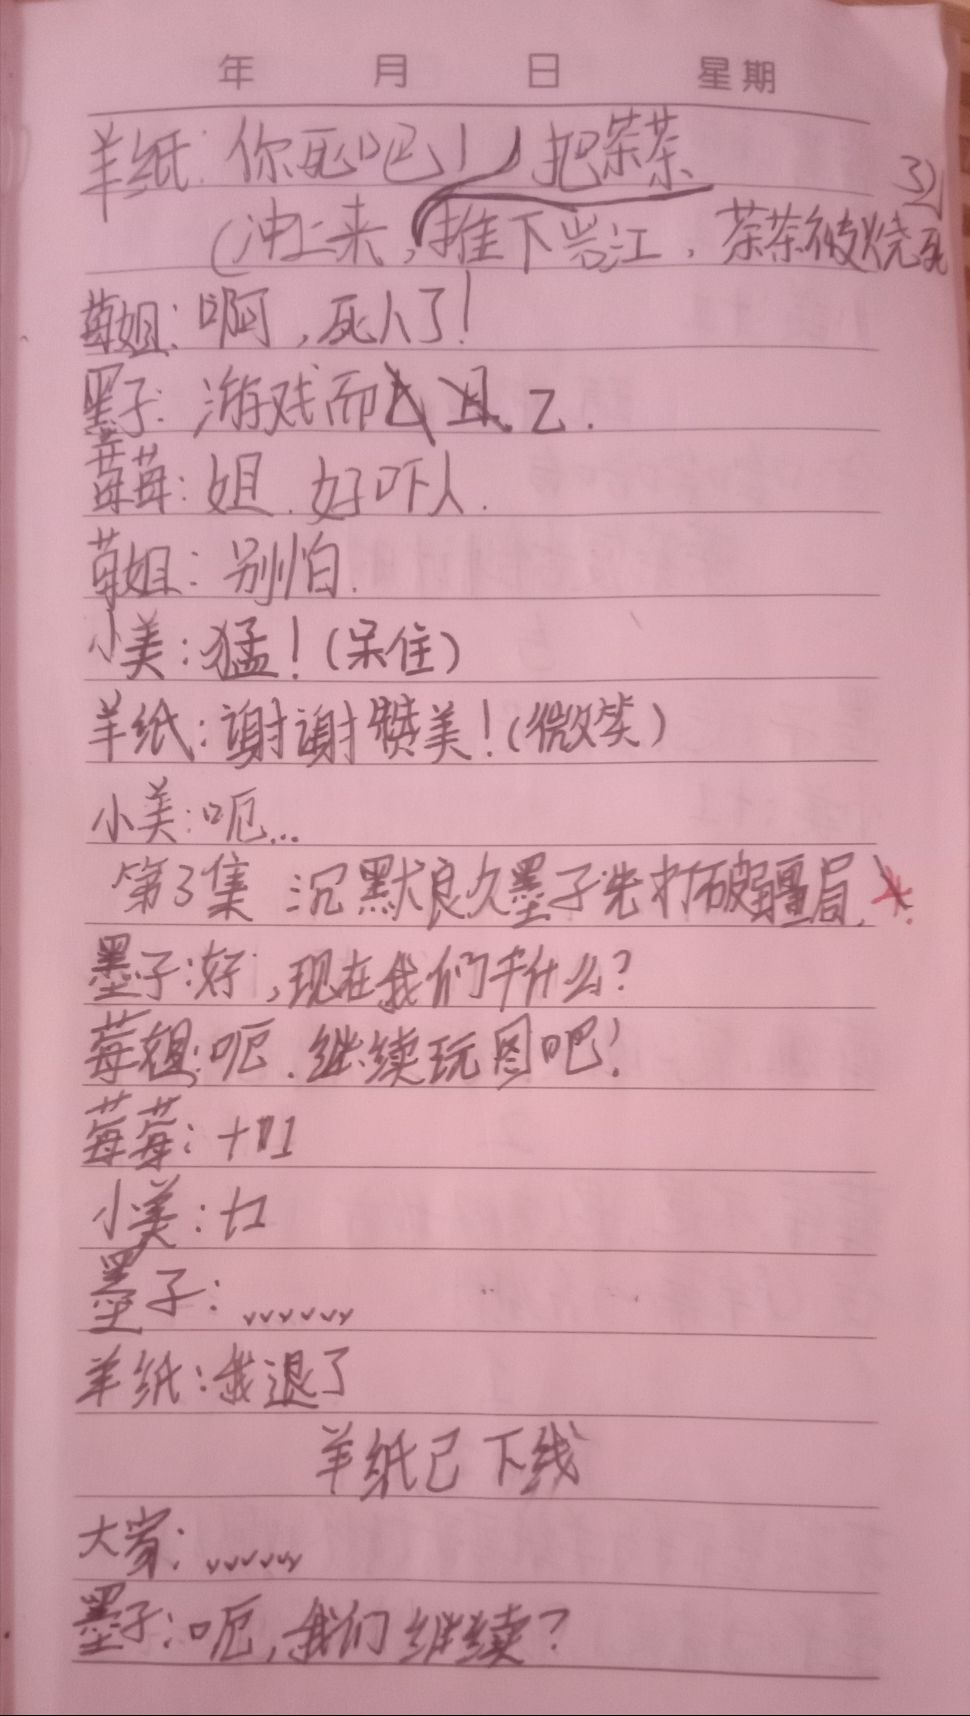 年 月 日 星期
羊纸：你死吧！把茶茶
（冲上来，推下岩江，茶茶被烧死
莓姐：啊，死人了！
墨子：游戏而已.
莓莓：姐.好吓人.
莓姐：别怕.
小美：猛！（呆住）
羊纸：谢谢赞美！（微笑）
小美：呃...
第3集 沉默良久墨子先打破疆局.
墨子：好，现在我们干什么？
莓姐：呃.继续玩图吧！
莓莓：+1
小美：+1
墨子：……
羊纸：我退了
羊纸已下线
大家：……
墨子：呃，我们继续？